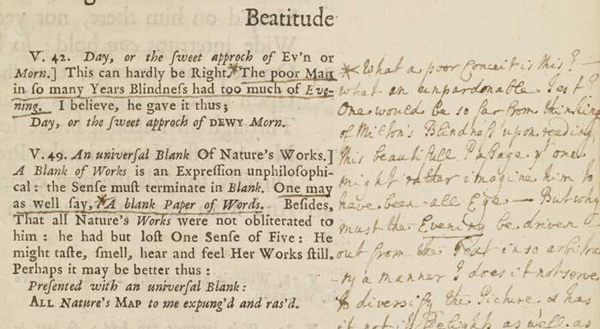 Beatitude
V. 42. Day, or the sweet approch of Ev'n or
Morn.] This can hardly be Right.* The poor Man
in so many Years Blindness had too much of Eve-
ning. I believe, he gave it thus;
Day, or the sweet approch of DEWY Morn.
V. 49. An universal Blank Of Nature's Works.]
A Blank of Works is an Expression unphilosophi-
cal: the Sense must terminate in Blank. One may
as well say, *A blank Paper of Words. Besides,
That all Nature's Works were not obliterated to
him: he had but lost One Sense of Five: He
might taste, smell, hear and feel Her Works still.
Perhaps it may be better thus:
Presented with an universal Blank:
ALL Nature's MAP to me expung'd and ras'd.
* What a poor Conceit is this? -
what an unpardonable Jest?
One would be so far from thinking
of Milton's Blindness upon reading
this beautifull Passage yt one
might rather imagine him to
have been all Eye - But why
must the Evening be driven
out from the Poet in so arbitra-
ry a manner? does it not serve
to diversify the Picture & has
it not it Delight as well as